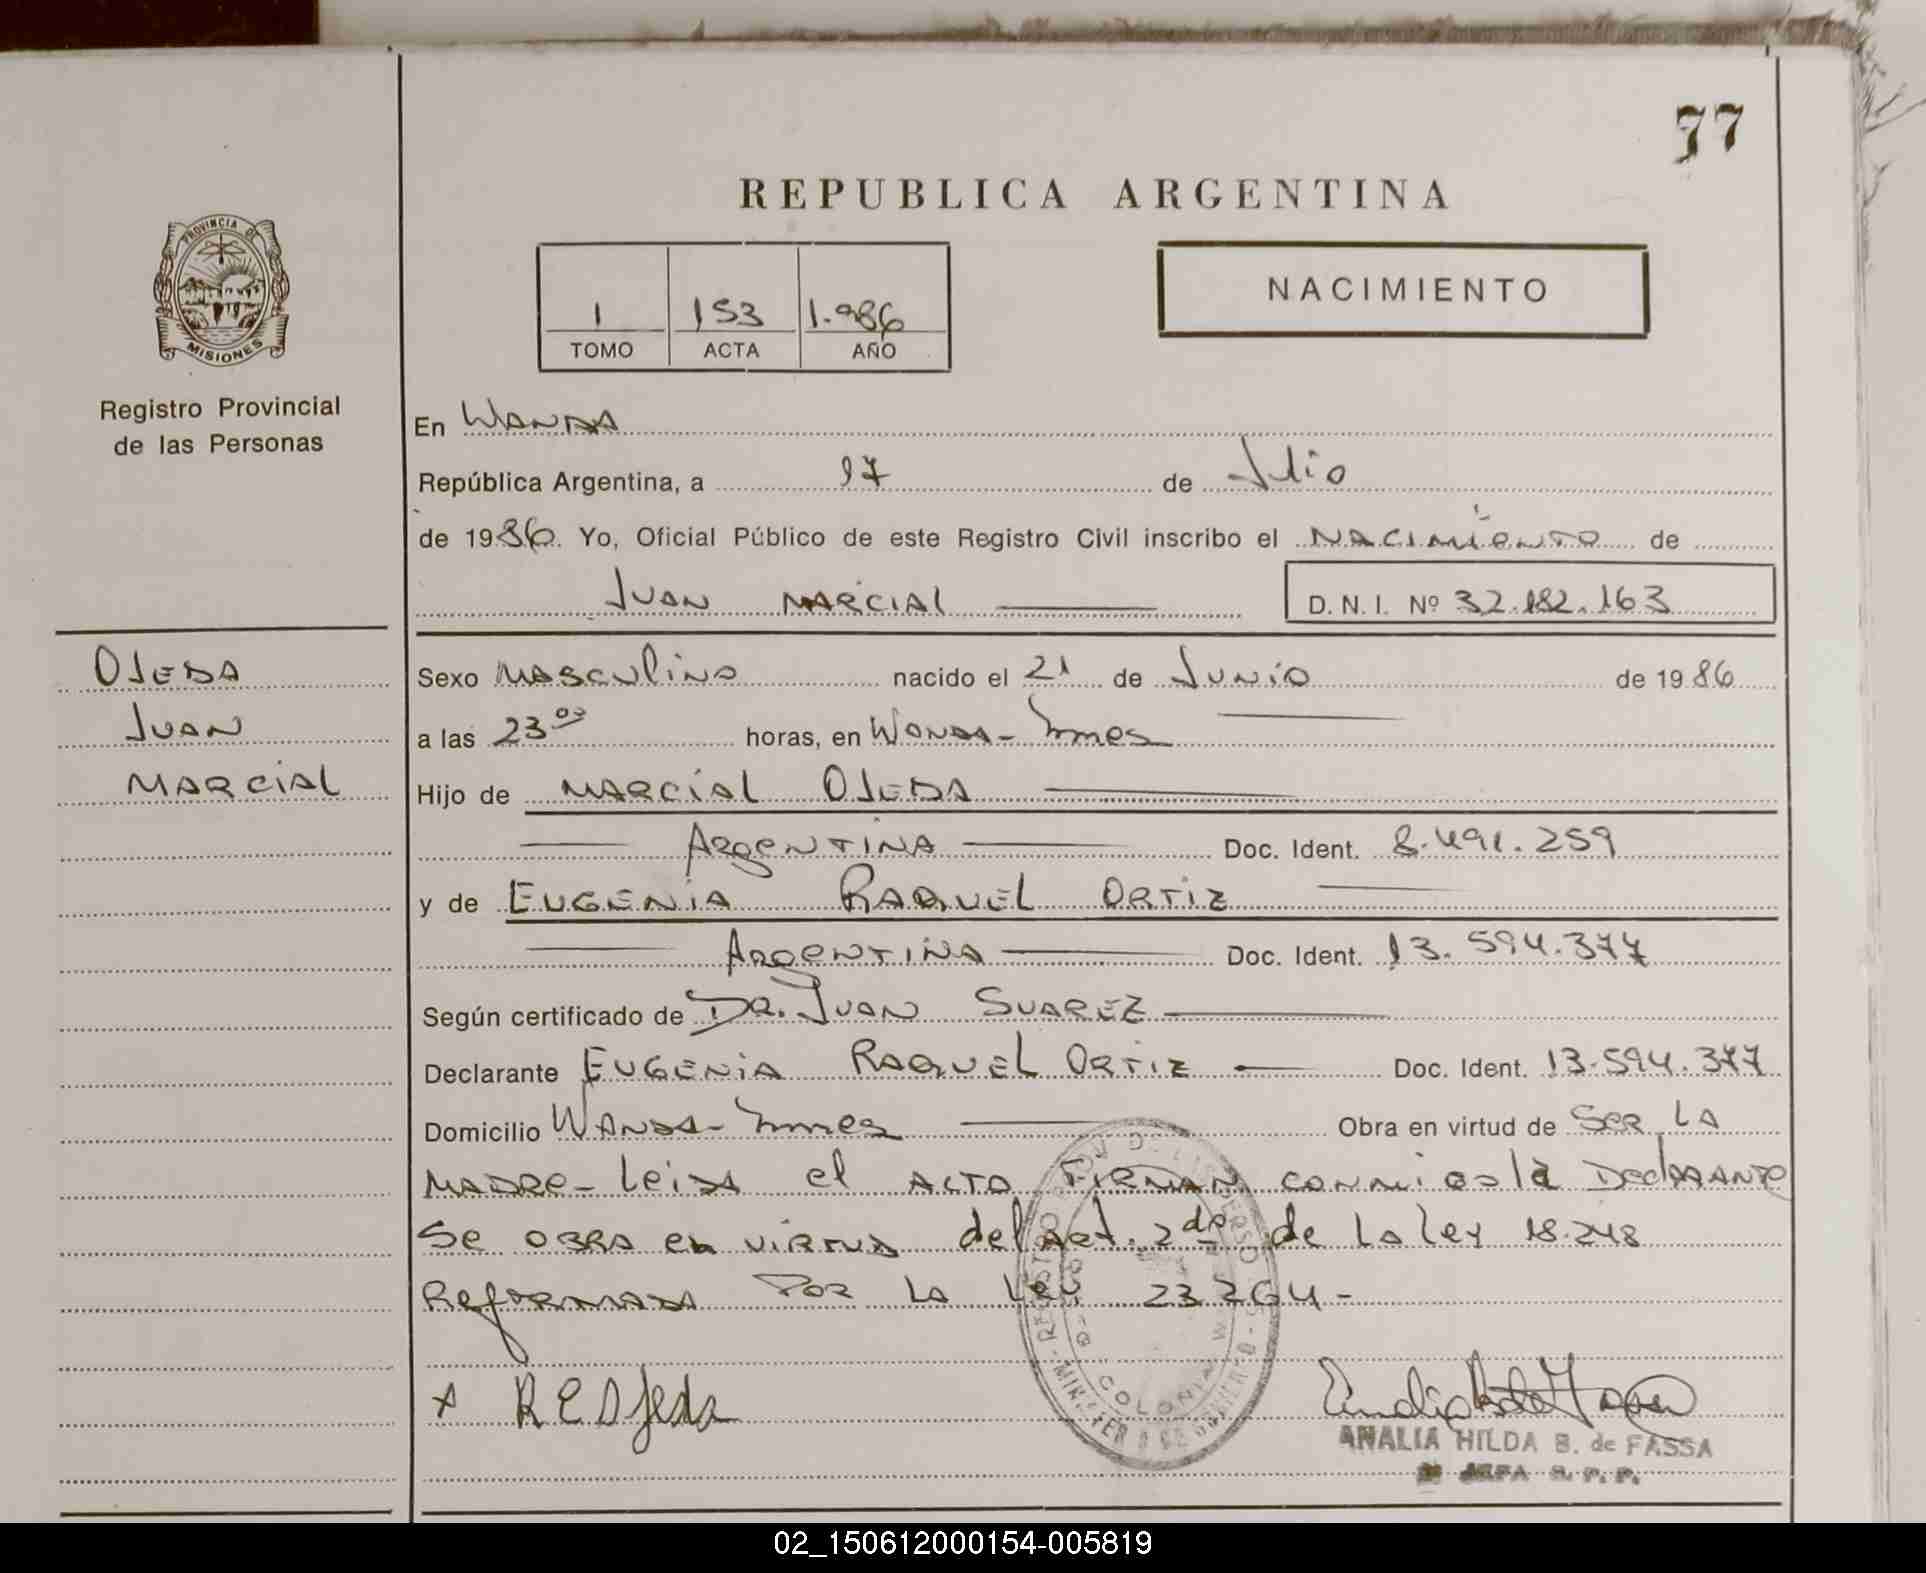 77
REPUBLICA ARGENTINA
PROVINCIA DE
MISIONES
1 153 1.986
TOMO ACTA AÑO
NACIMIENTO
Registro Provincial
de las Personas
En WANDA
República Argentina, a 17 de Julio
de 1986. Yo, Oficial Público de este Registro Civil inscribo el NACIMIENTO de
JUAN MARCIAL
D. N. I. Nº 32.182.163
OJEDA
JUAN
MARCIAL
Sexo MASCULINO nacido el 21 de JUNIO de 1986
a las 23 00 horas, en WANDA - Mnes
Hijo de MARCIAL OJEDA
ARGENTINA Doc. Ident. 8.491.259
y de EUGENIA RAQUEL ORTIZ
ARGENTINA Doc. Ident. 13.594.377
Según certificado de DR. JUAN SUAREZ
Declarante EUGENIA RAQUEL ORTIZ Doc. Ident. 13.594.377
Domicilio WANDA - Mnes Obra en virtud de SER LA
MADRE - Leida el ACTO FIRMAN CONMIGO la DeclARANTE
Se OBRA en VIRTUD del Art. 2do de La Ley 18.248
ReFORMADA POR LA Ley 23264 -
x R E Ojeda
COLONIA W
ANALIA HILDA B. de FASSA
JEFA R. P. P.
02_150612000154-005819